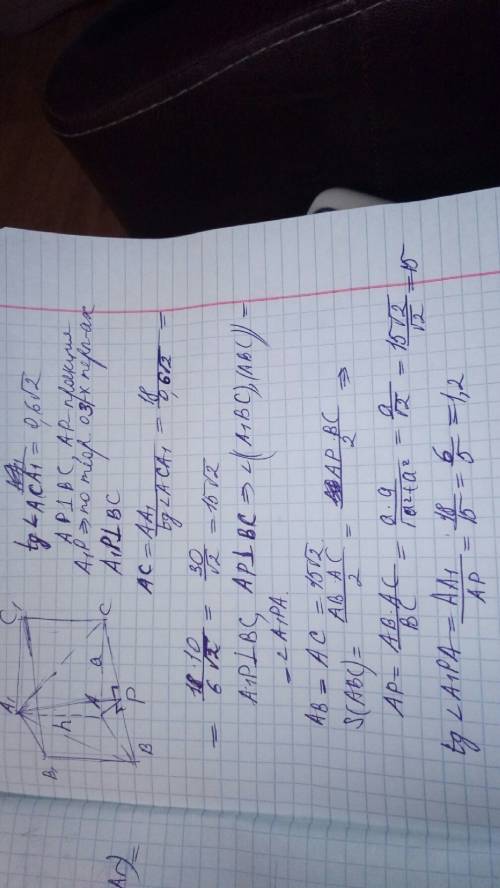 A₁
C₁
B₁
h
A
a
C
B
P
tg∠ACA₁ = 0,6√2
AP⊥BC, AP-проекция
A₁P ⇒ по теор. о 3х перп-ах
A₁P⊥BC
AC = AA₁/tg∠ACA₁ = 18/0,6√2 =
= 18·10/6√2 = 30/√2 = 15√2
A₁P⊥BC, AP⊥BC ⇒ ∠((A₁BC),(ABC)) =
= ∠A₁PA.
AB = AC = 15√2
S(ABC) = AB·AC/2 = AP·BC/2 ⇒
AP = AB·AC/BC = a·a/√a²+a² = a/√2 = 15√2/√2 = 15
tg∠A₁PA = AA₁/AP = 18/15 = 6/5 = 1,2